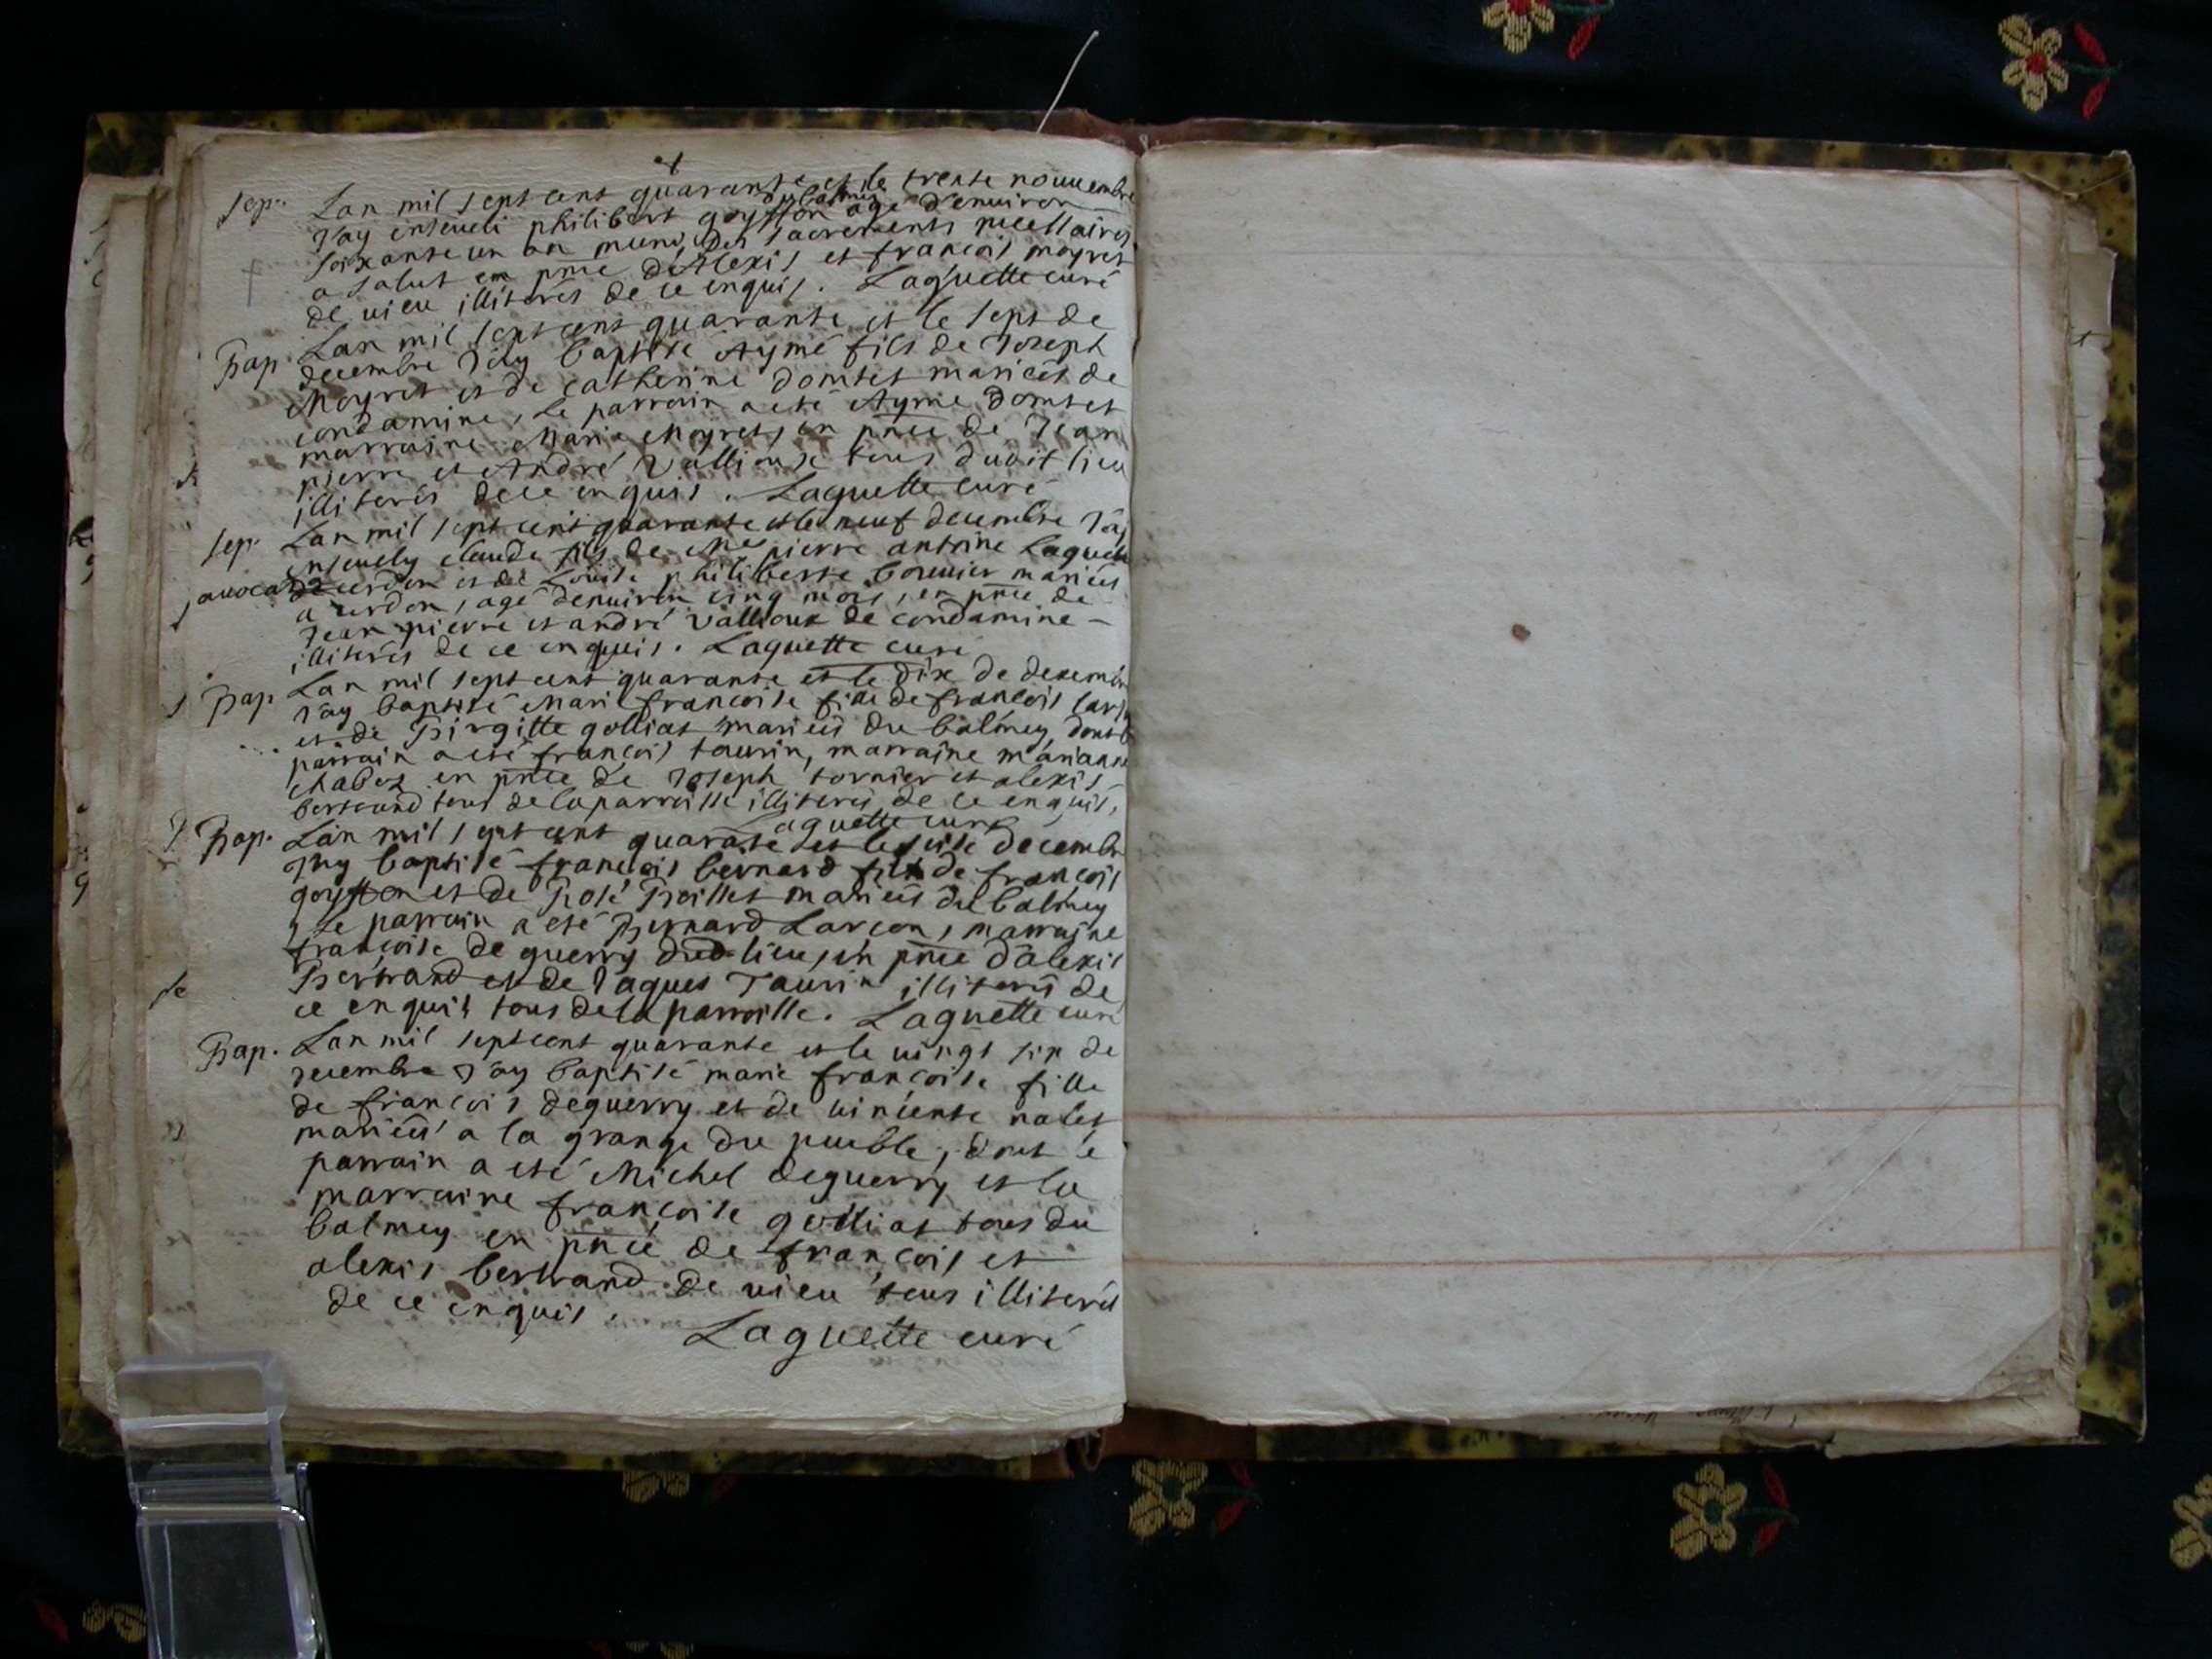 Sep. Lan mil sept cent quarante et le trente nouuembre
J'ay enseueli philibert goyffon du balmey agé d'enuiron
soixante un an muni des sacrements necessaires
a salut en pnce d'Alexis et francois moyret
de uieu illiterés de ce enquis. Laguette curé
Bap. Lan mil sept cent quarante et le sept de
decembre J'ay baptisé Aymé fils de Joseph
Moyret et de catherine domtet mariés de
condamine, le parrain a eté Aymé domtet
marraine Marie Moyret, en pnce de Jean
pierre et André Vallioux tous dudit lieu
illiterés de ce enquis. Laguette curé
Sep. Lan mil sept cent quarante et le neuf decembre J'ay
enseuely claude fils de Me pierre antoine Laguette
auocat de cerdon et de Louise philiberte bonnier mariés
a cerdon, agé denuiron cinq mois, en pnce de
Jean pierre et andré Vallioux de condamine
illiterés de ce enquis. Laguette curé
Bap Lan mil sept cent quarante et le dix de decembre
J'ay baptisé Marie francoise fille de francois
et de Birgitte golliat mariés du balmey, dont le
parrain a eté francois taurin, marraine marianne
chabez en pnce de Joseph tornier et alexis
bertrand tous de la parroisse illiterés de ce enquis,
Laguette curé
Bap. Lan mil sept cent quarante et le seise decembre
J'ay baptisé francois bernard fils de francois
goyffon et de Rose Boillet mariés du balmey
Le parrain a eté Bernard Larcon, marraine
francoise de guerry dud lieu, en pnce d'alexis
Bertrand et de Jaques Taurin illiterés de
ce enquis tous de la parroisse. Laguette curé
Bap. Lan mil sept cent quarante et le uingt six de
decembre J'ay baptisé marie francoise fille
de francois deguerry et de uincente nalet
mariés a la grange du pueble, dont le
parrain a eté Michel deguerry et la
marraine francoise golliat tous du
balmey en pnce de francois et
alexis bertrand de uieu tous illiterés
de ce enquis.
Laguette curé